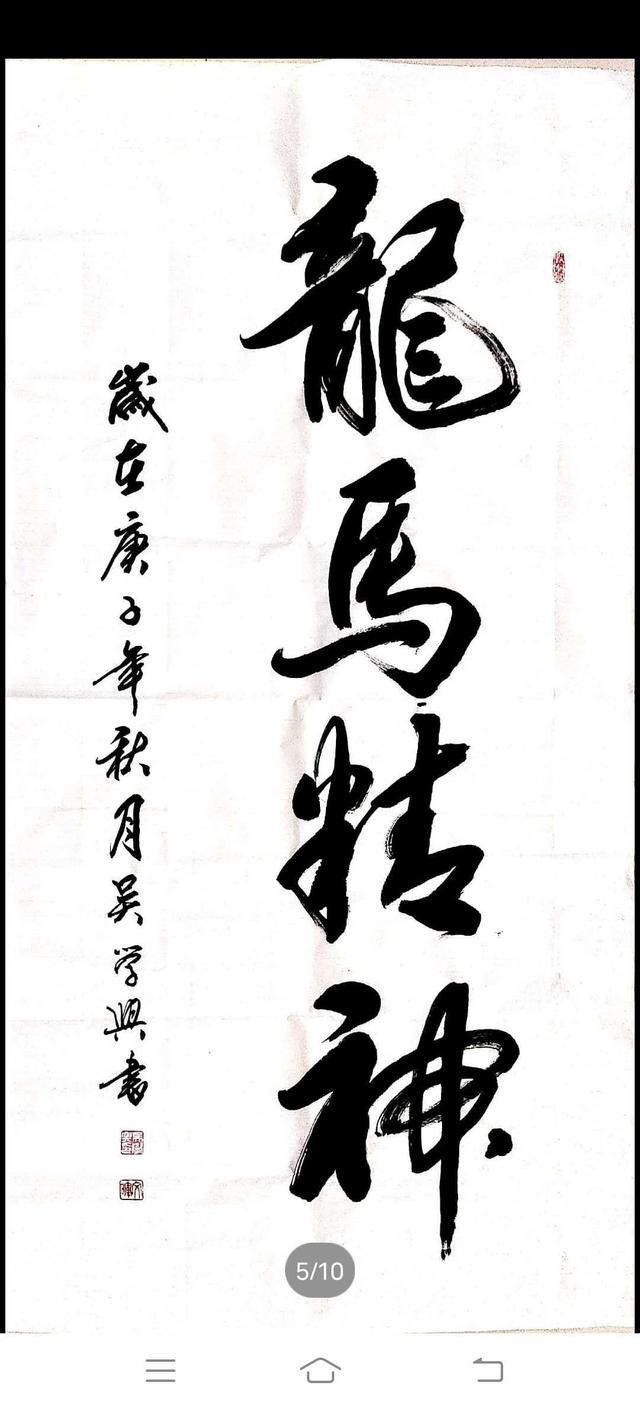 龍馬精神
歲在庚子年秋月吴学興書
5/10